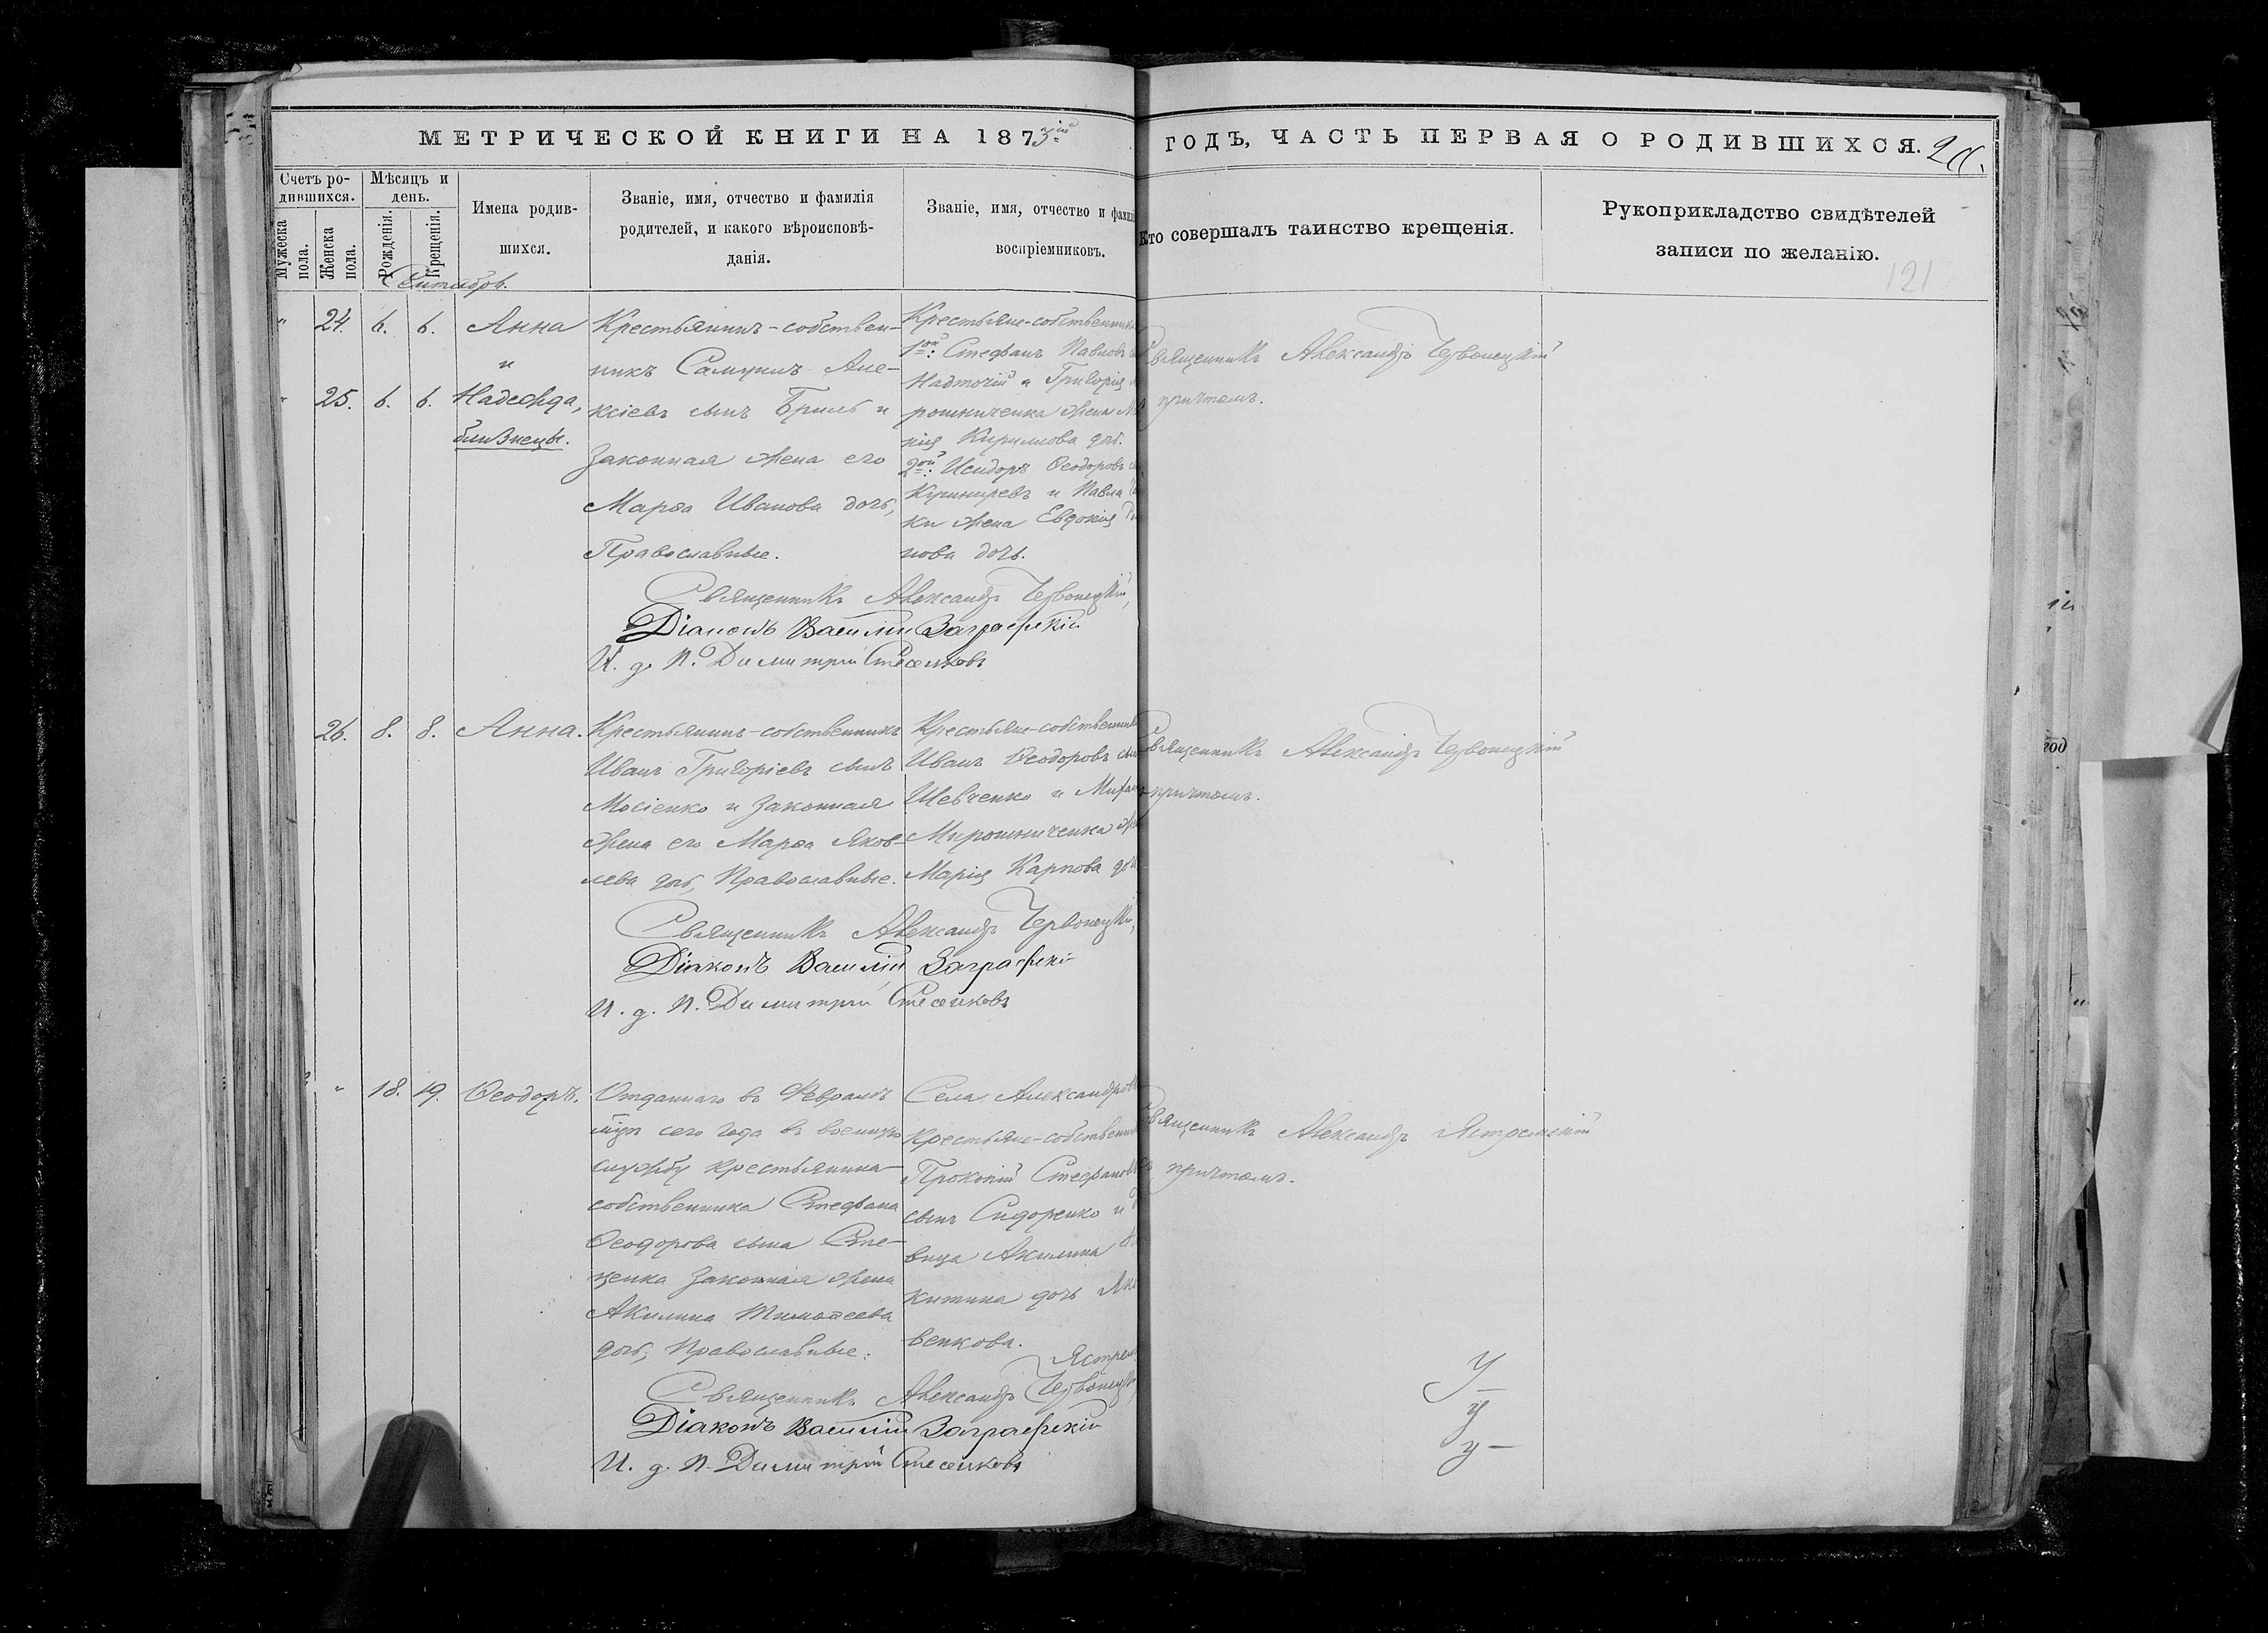 МЕТРИЧЕСКОЙ КНИГИ НА 1873й ГОДЪ, ЧАСТЬ ПЕРВАЯ О РОДИВШИХСЯ.
Счетъ родившихся.
Мужеска пола.
Женска пола.
Мѣсяцъ и день.
Рожденія.
Крещенія.
Имена родившихся.
Званіе, имя, отчество и фамилія
родителей, и какого вѣроисповѣ-
данія.
Званіе, имя, отчество и фамилі
воспріемниковъ.
Кто совершалъ таинство крещенія.
Рукоприкладство свидѣтелей
записи по желанію.
121
Сентябрь.
" 24. 6. 6. Анна
и
" 25. 6. 6. Надежда,
близнецы.
Крестьянинъ-собствен-
никъ Самуилъ Але-
ксіевъ сынъ Бриль и
законная жена его
Марѳа Иванова дочь,
Православные.
Крестьяне-собственники
1й: Стефанъ Павловъ
Надточій и Григорія
рошниченка жена
Кириллова доч.
2й: Исидоръ Ѳеодоровъ
и Павла
ки жена Евдокія
нова дочь.
Священникъ Александръ Червонецкій
причтомъ.
Священникъ Александръ Червонецкій,
Діаконъ Василій Заграфскій
И. д. п. Димитрій Стесенковъ
26. 8. 8. Анна.
Крестьянинъ-собственникъ
Иванъ Григоріевъ сынъ
Мосіенко и законная
жена его Марѳа Яков-
лева дочь, Православные.
Крестьяне-собственники
Иванъ Ѳеодоровъ сын
Шевченко и Михаил
Мирошниченка жен
Марія Карпова доч
Священникъ Александръ Червонецкій
причтомъ.
Священникъ Александръ Червонецкій,
Діаконъ Василій Заграфскій
И. д. п. Димитрій Стесенковъ
" 18. 19. Ѳеодоръ.
Отданнаго въ Февралѣ
мцѣ сего года въ военную
службу крестьянина-
собственника Стефана
Ѳеодорова сына Сте-
ценка законная жена
Акилина Тимоѳеева
дочь, Православные.
Села Александров
крестьяне-собственник
Прокопій Стефановъ
сынъ Сидоренко и
вица Акилина
китина дочь Яко
венкова.
Священникъ Александръ Ястремскій
съ причтомъ.
Ястрем
Священникъ Александръ Червонецк
Діаконъ Василій Заграфскій
И. д. п. Димитрій Стесенковъ